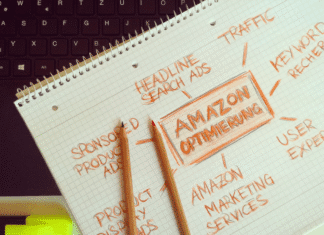 TRAFFIC
HEADLINE
SEARCH ADS
KEYWORD
RECHER
AMAZON
OPTIMIERUNG
SPONSORED
PRODUCT
ADS
USER
EXPER
AMAZON
MARKETING
SERVICES
PRODUCT
DISPLAY
ADS